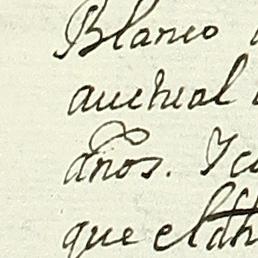 Blanco
aucheal
años. Y
que el dh